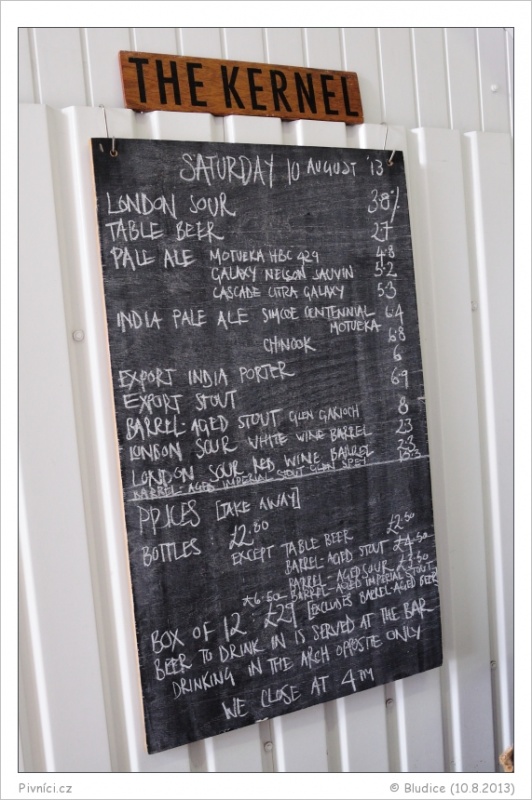 THE KERNEL
SATURDAY 10 AUGUST '13
LONDON SOUR 3.8%
TABLE BEER 2.7
PALE ALE MOTUEKA HBC 429 4.8
GALAXY NELSON SAUVIN 5.2
CASCADE CITRA GALAXY 5.3
INDIA PALE ALE SIMCOE CENTENNIAL 6.4
MOTUEKA
CHINOOK 6.8
EXPORT INDIA PORTER 6
EXPORT STOUT 6.9
BARREL-AGED STOUT GLEN GARIOCH 8
LONDON SOUR WHITE WINE BARREL 2.3
LONDON SOUR RED WINE BARREL 2.3
BARREL-AGED IMPERIAL STOUT GLEN SPEY
PRICES [TAKE AWAY]
BOTTLES £2.80
EXCEPT TABLE BEER £2.50
BARREL-AGED STOUT £4.50
BARREL-AGED SOUR £3.50
£6.50 BARREL-AGED IMPERIAL STOUT
BOX OF 12 £29 [EXCLUDES BARREL-AGED BEER
BEER TO DRINK IN IS SERVED AT THE BAR
DRINKING IN THE ARCH OPPOSTIE ONLY
WE CLOSE AT 4PM
Pivníci.cz © Bludice (10.8.2013)